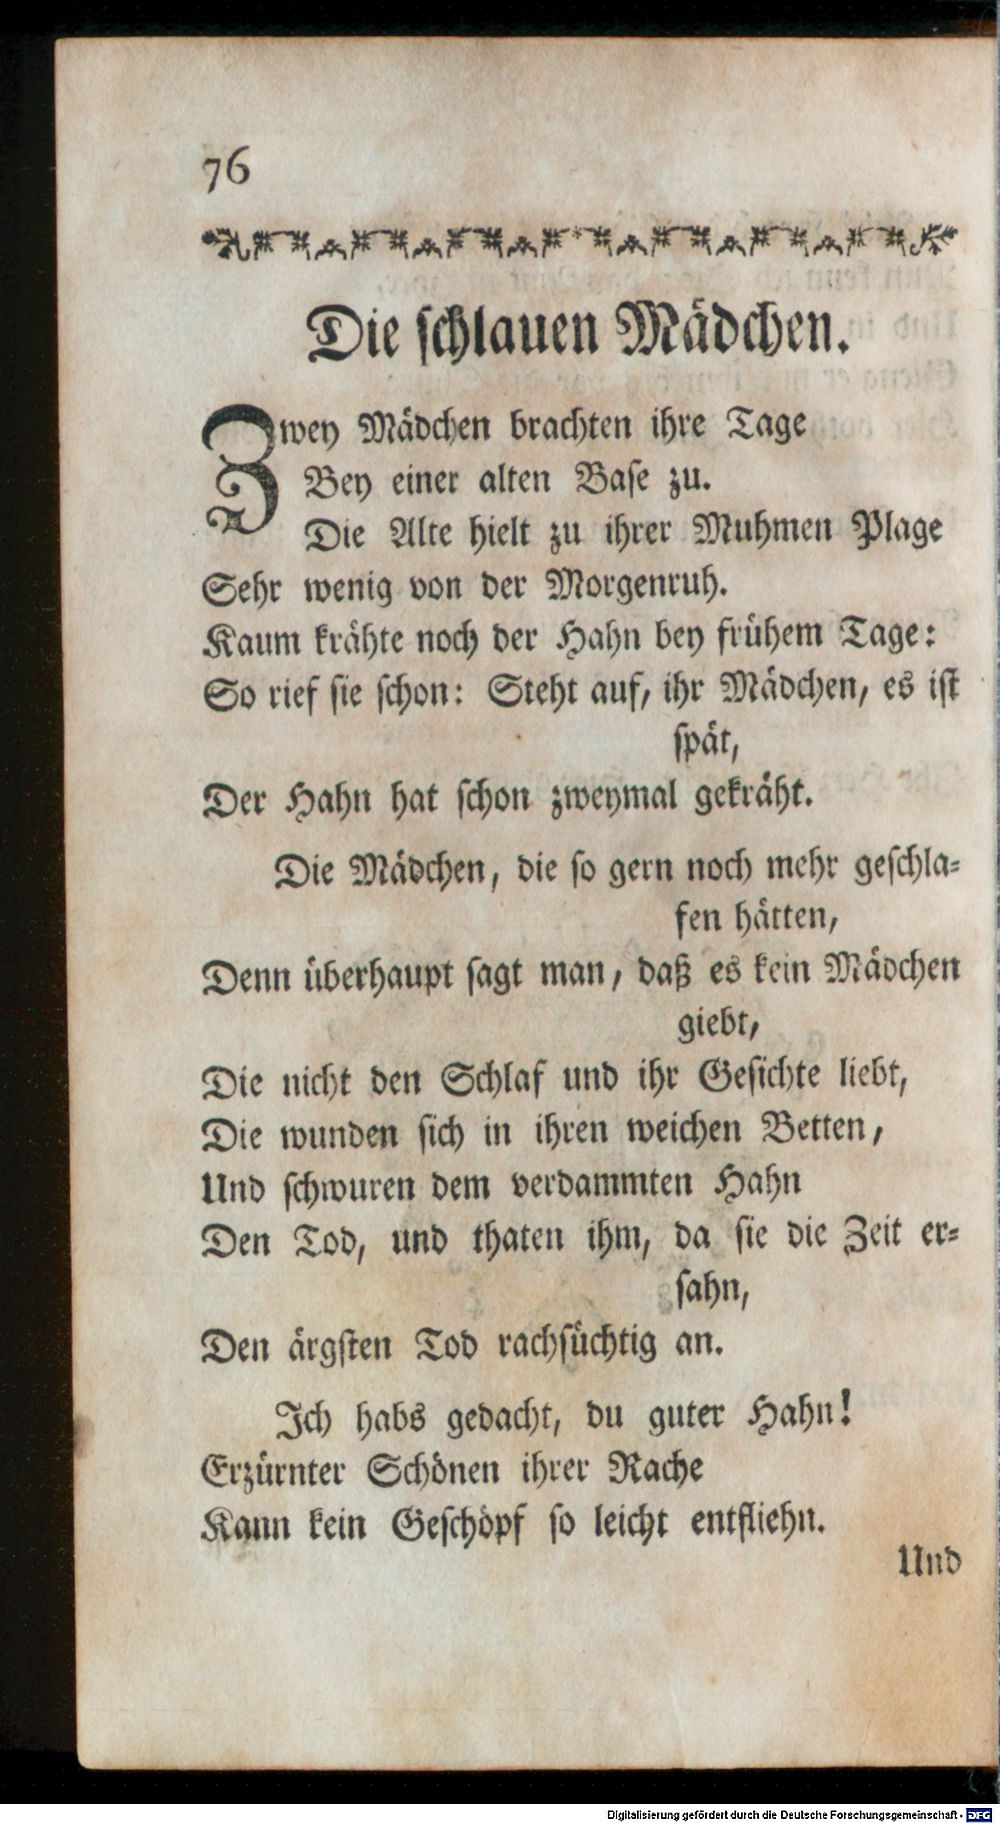 76
Die schlauen Mädchen.
Zwey Mädchen brachten ihre Tage
Bey einer alten Base zu.
Die Alte hielt zu ihrer Muhmen Plage
Sehr wenig von der Morgenruh.
Kaum krähte noch der Hahn bey frühem Tage:
So rief sie schon: Steht auf, ihr Mädchen, es ist
spät,
Der Hahn hat schon zweymal gekräht.
Die Mädchen, die so gern noch mehr geschla-
fen hätten,
Denn überhaupt sagt man, daß es kein Mädchen
giebt,
Die nicht den Schlaf und ihr Gesichte liebt,
Die wunden sich in ihren weichen Betten,
Und schwuren dem verdammten Hahn
Den Tod, und thaten ihm, da sie die Zeit er-
sahn,
Den ärgsten Tod rachsüchtig an.
Ich habs gedacht, du guter Hahn!
Erzürnter Schönen ihrer Rache
Kann kein Geschöpf so leicht entfliehn.
Und
Digitalisierung gefördert durch die Deutsche Forschungsgemeinschaft - DFG